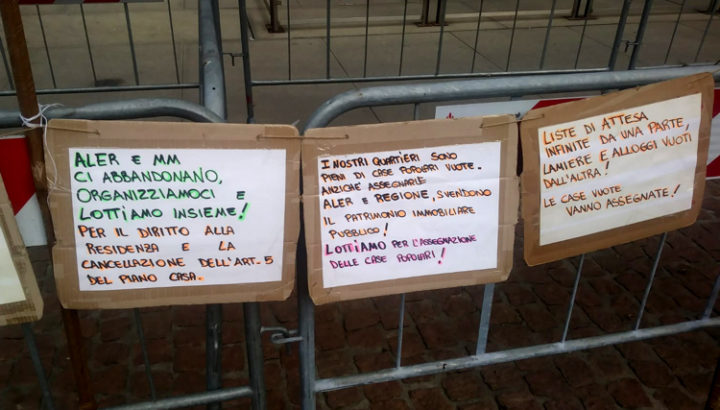 ALER E MM
CI ABBANDONANO,
ORGANIZZIAMOCI E
LOTTIAMO INSIEME!
PER IL DIRITTO ALLA
RESIDENZA E LA
CANCELLAZIONE DELL'ART. 5
DEL PIANO CASA.
I NOSTRI QUARTIERI SONO
PIENI DI CASE POPOLARI VUOTE.
ANZICHÉ ASSEGNARLE
ALER E REGIONE, SVENDONO
IL PATRIMONIO IMMOBILIARE
PUBBLICO!
LOTTIAMO PER L'ASSEGNAZIONE
DELLE CASE POPOLARI!
LISTE DI ATTESA
INFINITE DA UNA PARTE,
LAMIERE E ALLOGGI VUOTI
DALL'ALTRA!
LE CASE VUOTE
VANNO ASSEGNATE!